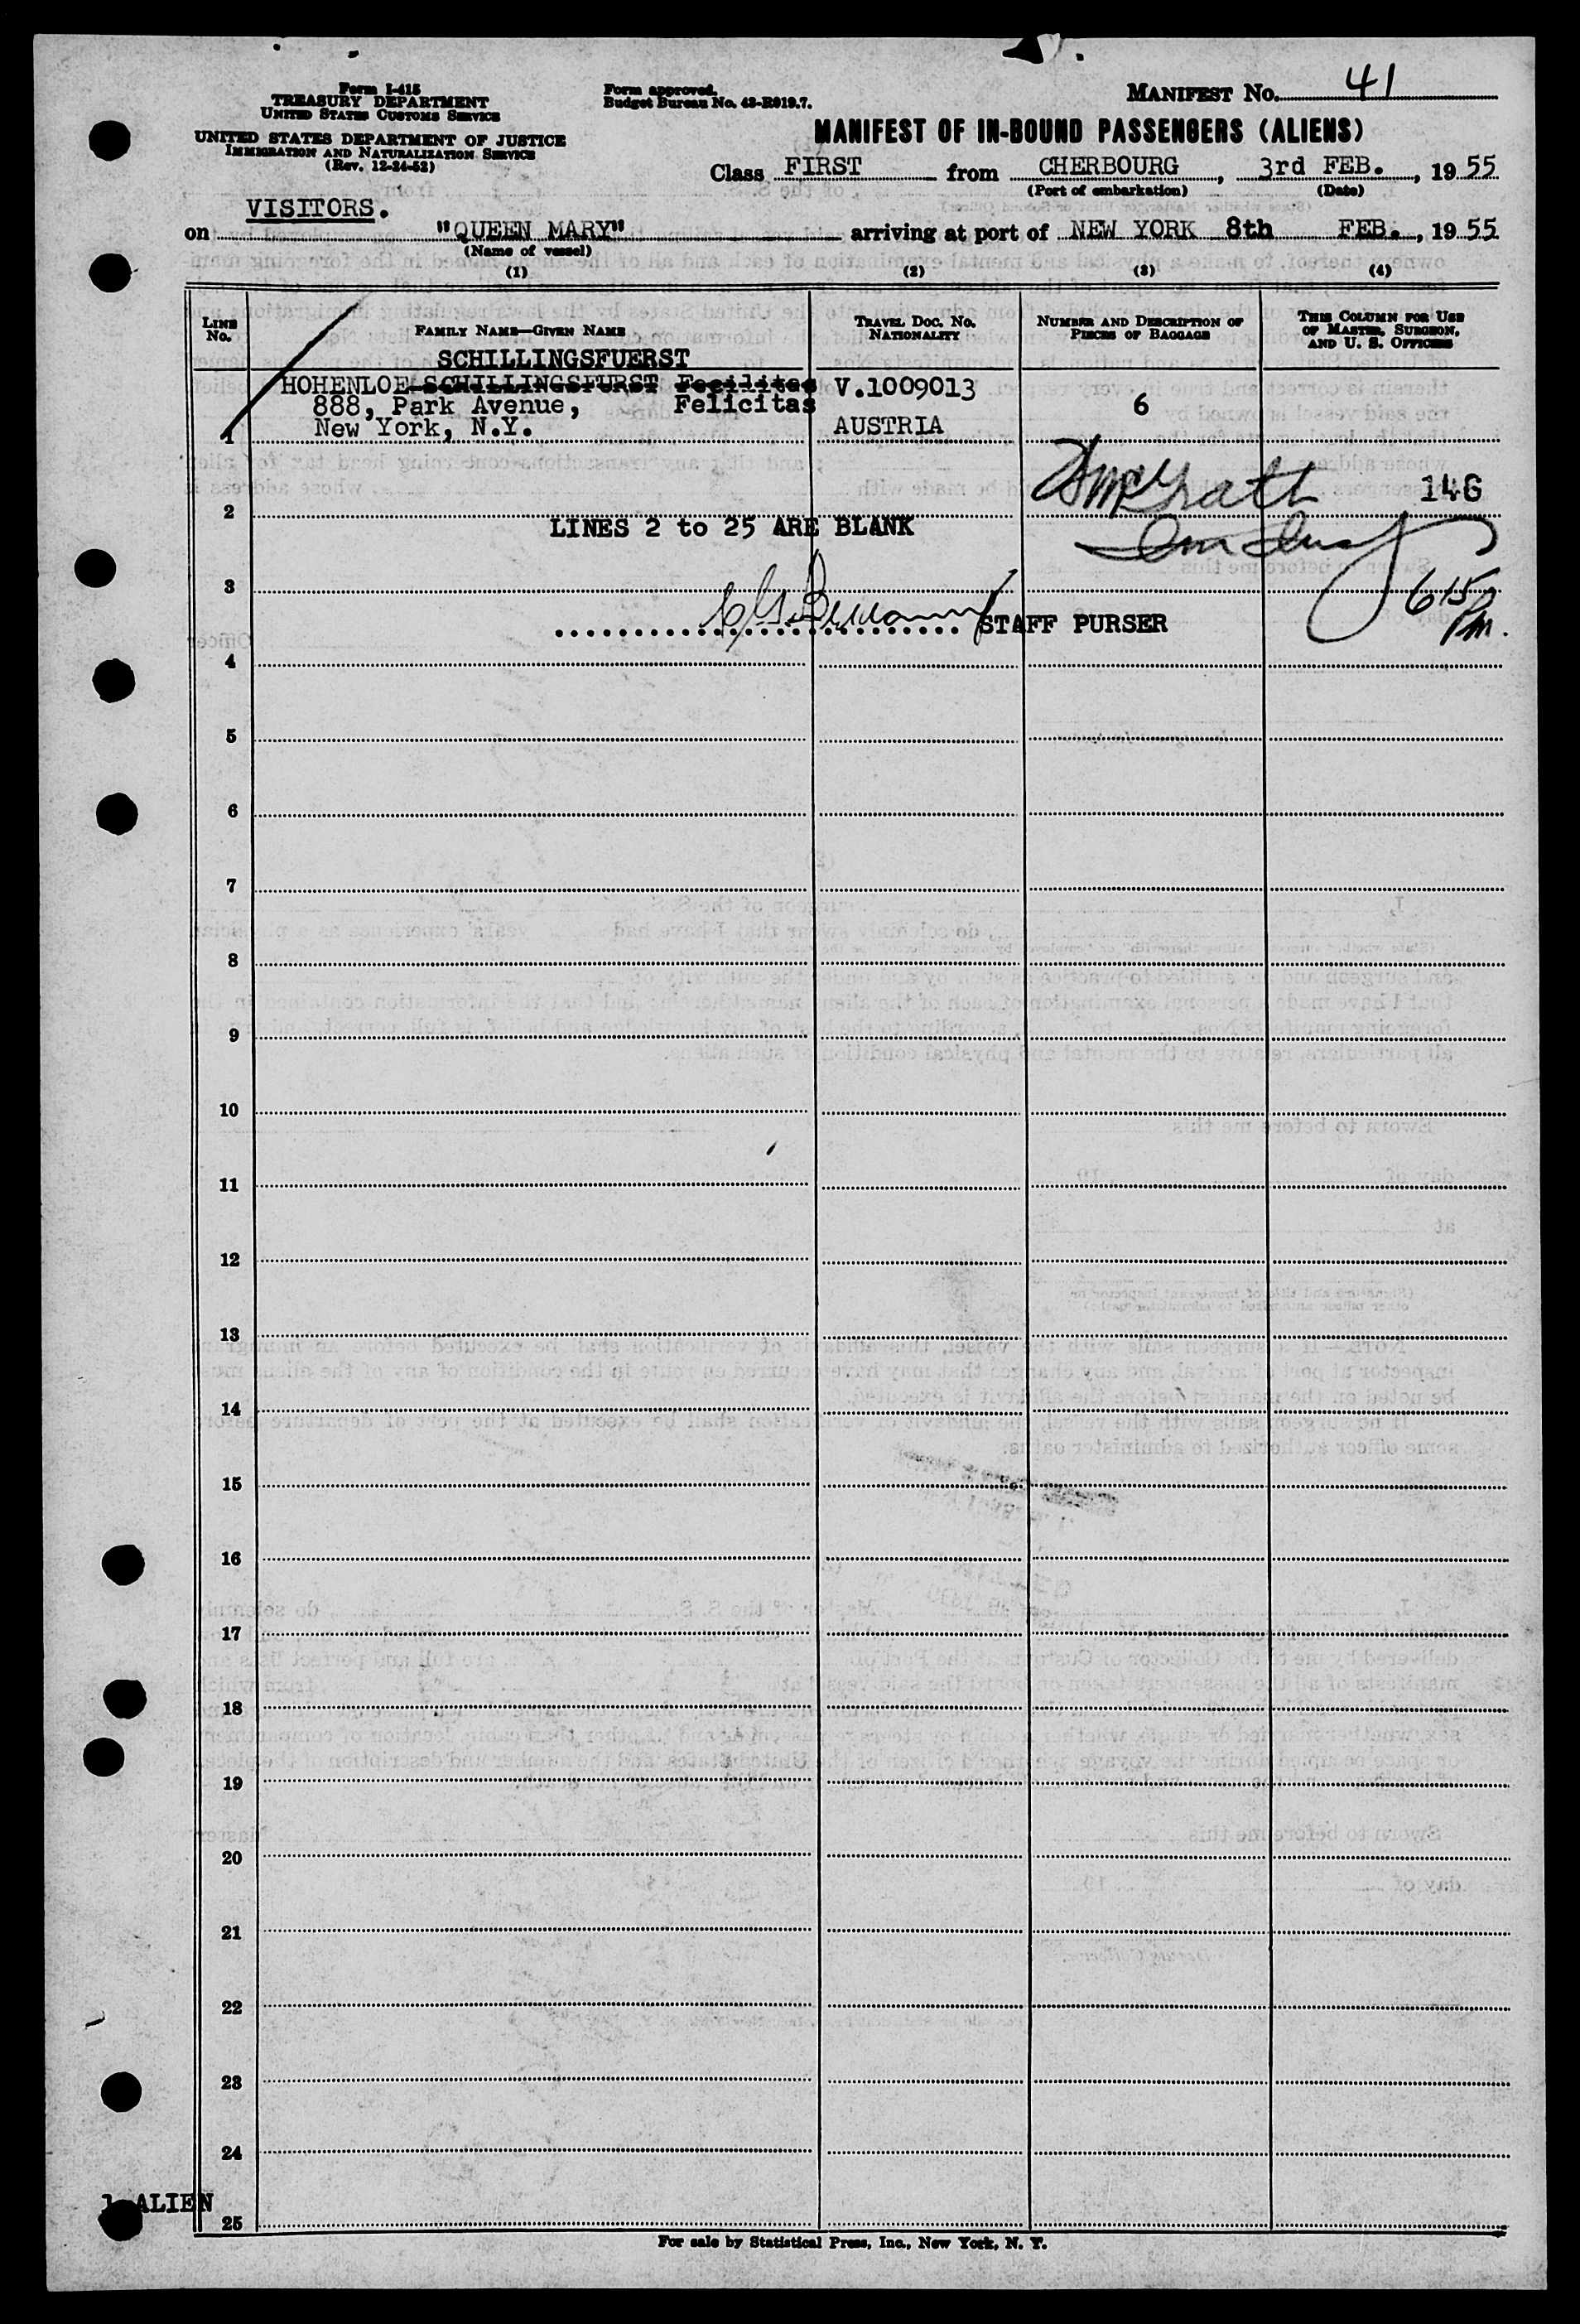 Form I-415
TREASURY DEPARTMENT
UNITED STATES CUSTOMS SERVICE
UNITED STATES DEPARTMENT OF JUSTICE
IMMIGRATION AND NATURALIZATION SERVICE
(Rev. 12-24-52)
Form approved.
Budget Bureau No. 43-R019.7.
MANIFEST NO. 41
MANIFEST OF IN-BOUND PASSENGERS (ALIENS)
Class FIRST from CHERBOURG, 3rd FEB., 1955
(Port of embarkation) (Date)
VISITORS.
on "QUEEN MARY" arriving at port of NEW YORK 8th FEB., 1955
(Name of vessel)
(1) (2) (3) (4)
LINE NO.
FAMILY NAME—GIVEN NAME
TRAVEL DOC. NO.
NATIONALITY
NUMBER AND DESCRIPTION OF
PIECES OF BAGGAGE
THIS COLUMN FOR USE
OF MASTER, SURGEON,
AND U. S. OFFICERS
SCHILLINGSFUERST
HOHENLOE-SCHILLINGSFURST Fecilitas V.1009013
888, Park Avenue, Felicitas 6
New York, N.Y. AUSTRIA
1
McGrath 14G
2
LINES 2 to 25 ARE BLANK
3
615
STAFF PURSER Pm.
4
5
6
7
8
9
10
11
12
13
14
15
16
17
18
19
20
21
22
23
24
1 ALIEN
25
For sale by Statistical Press, Inc., New York, N. Y.